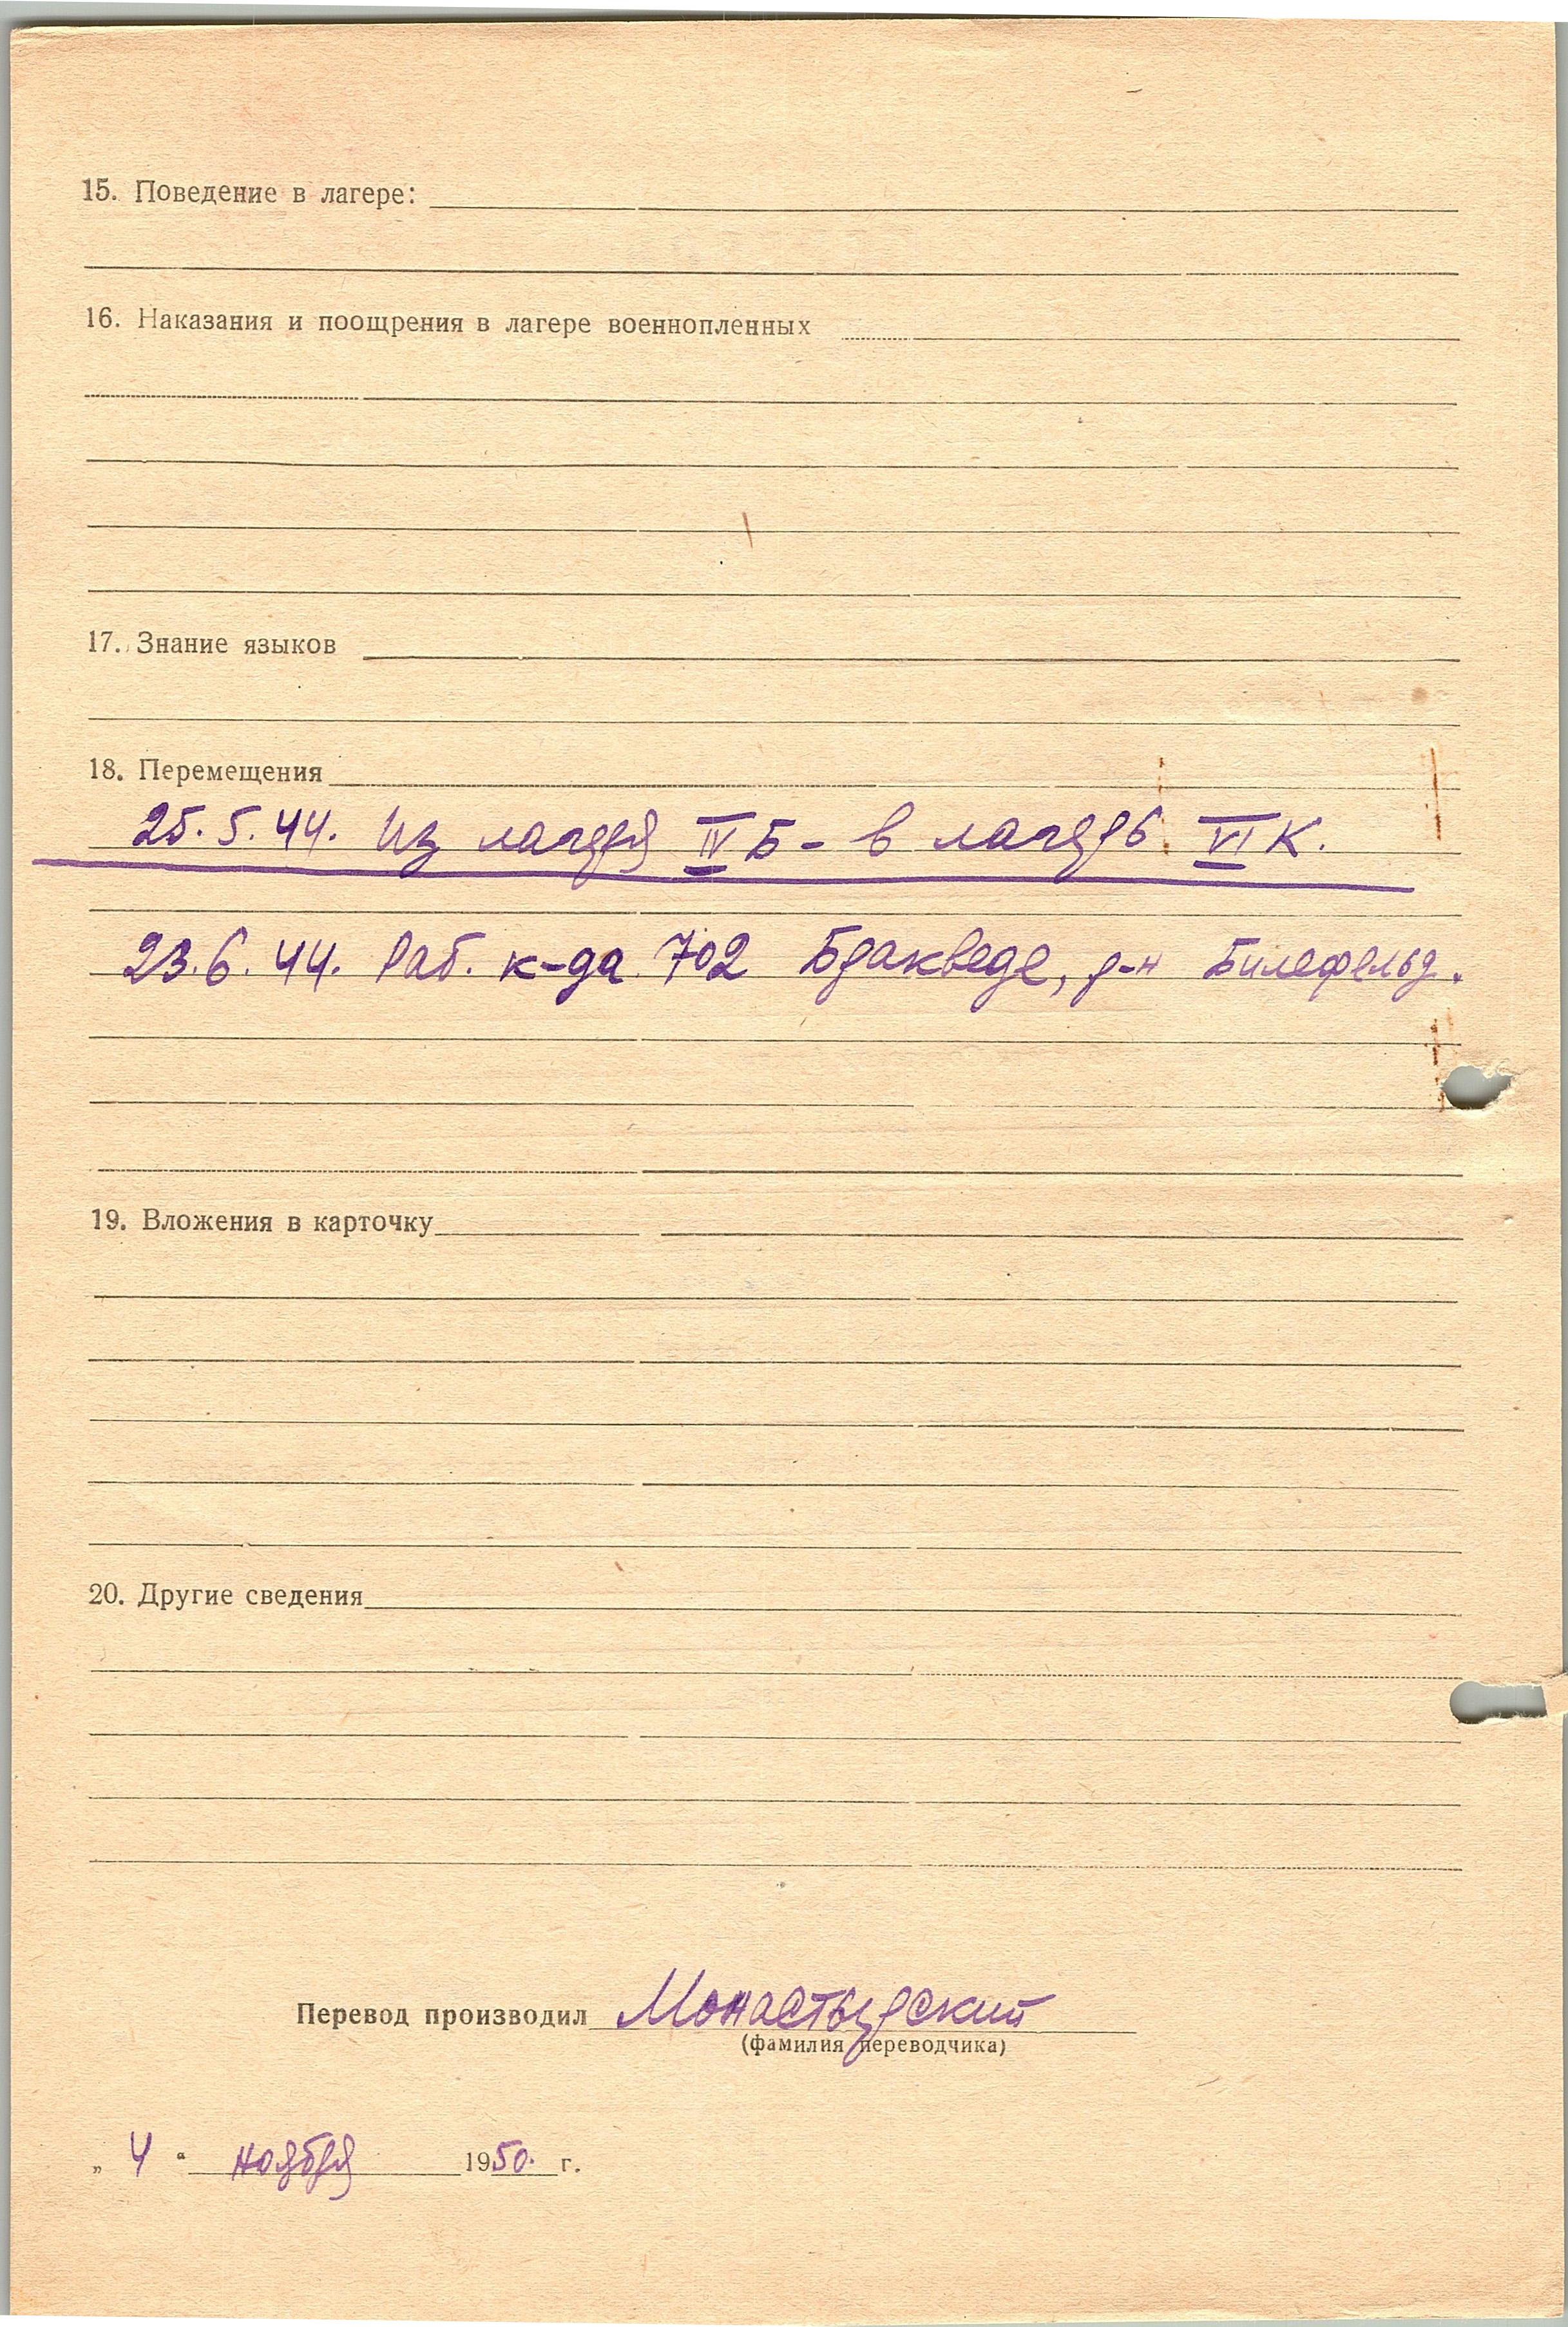 15. Поведение в лагере:
16. Наказания и поощрения в лагере военнопленных
17. Знание языков
18. Перемещения
25.5.44. Из лагеря IV Б - в лагерь VI К.
23.6.44. Раб. к-да 702 Бракведе, р-н Билефельд.
19. Вложения в карточку
20. Другие сведения
Перевод производил Монастырский
(фамилия переводчика)
„ 4 “ ноября 1950. г.